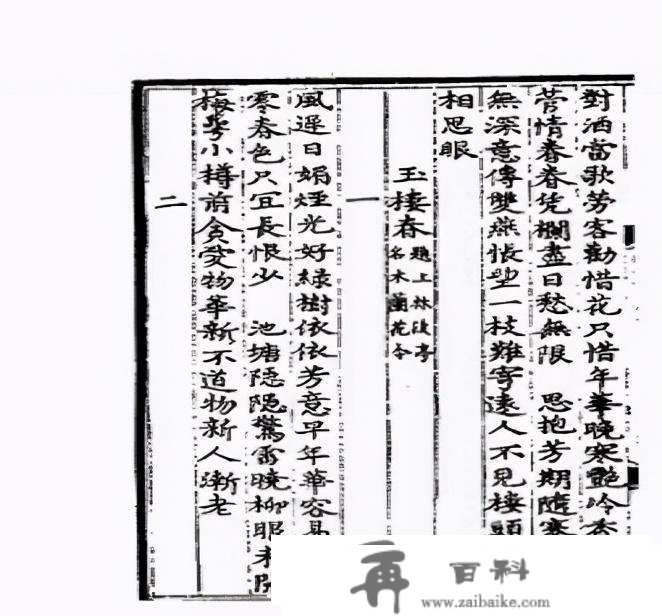 對酒當歌勞客勸惜花只惜年華晚寒艷冷香
管情眷眷凭欄盡日愁無限　思抱芳期隨塞
無深意傳雙燕悵望一枝難寄遠人不見樓頭
相思眼
玉樓春
題上林後亭
名木蘭花令
一
風遲日媚煙光好綠樹依依芳意早年華容易
零春色只宜長恨少　池塘隱隱驚雷曉柳眼未開
梅萼小樽前貪愛物華新不道物新人漸老
二
再 百科
www.zaibaike.com